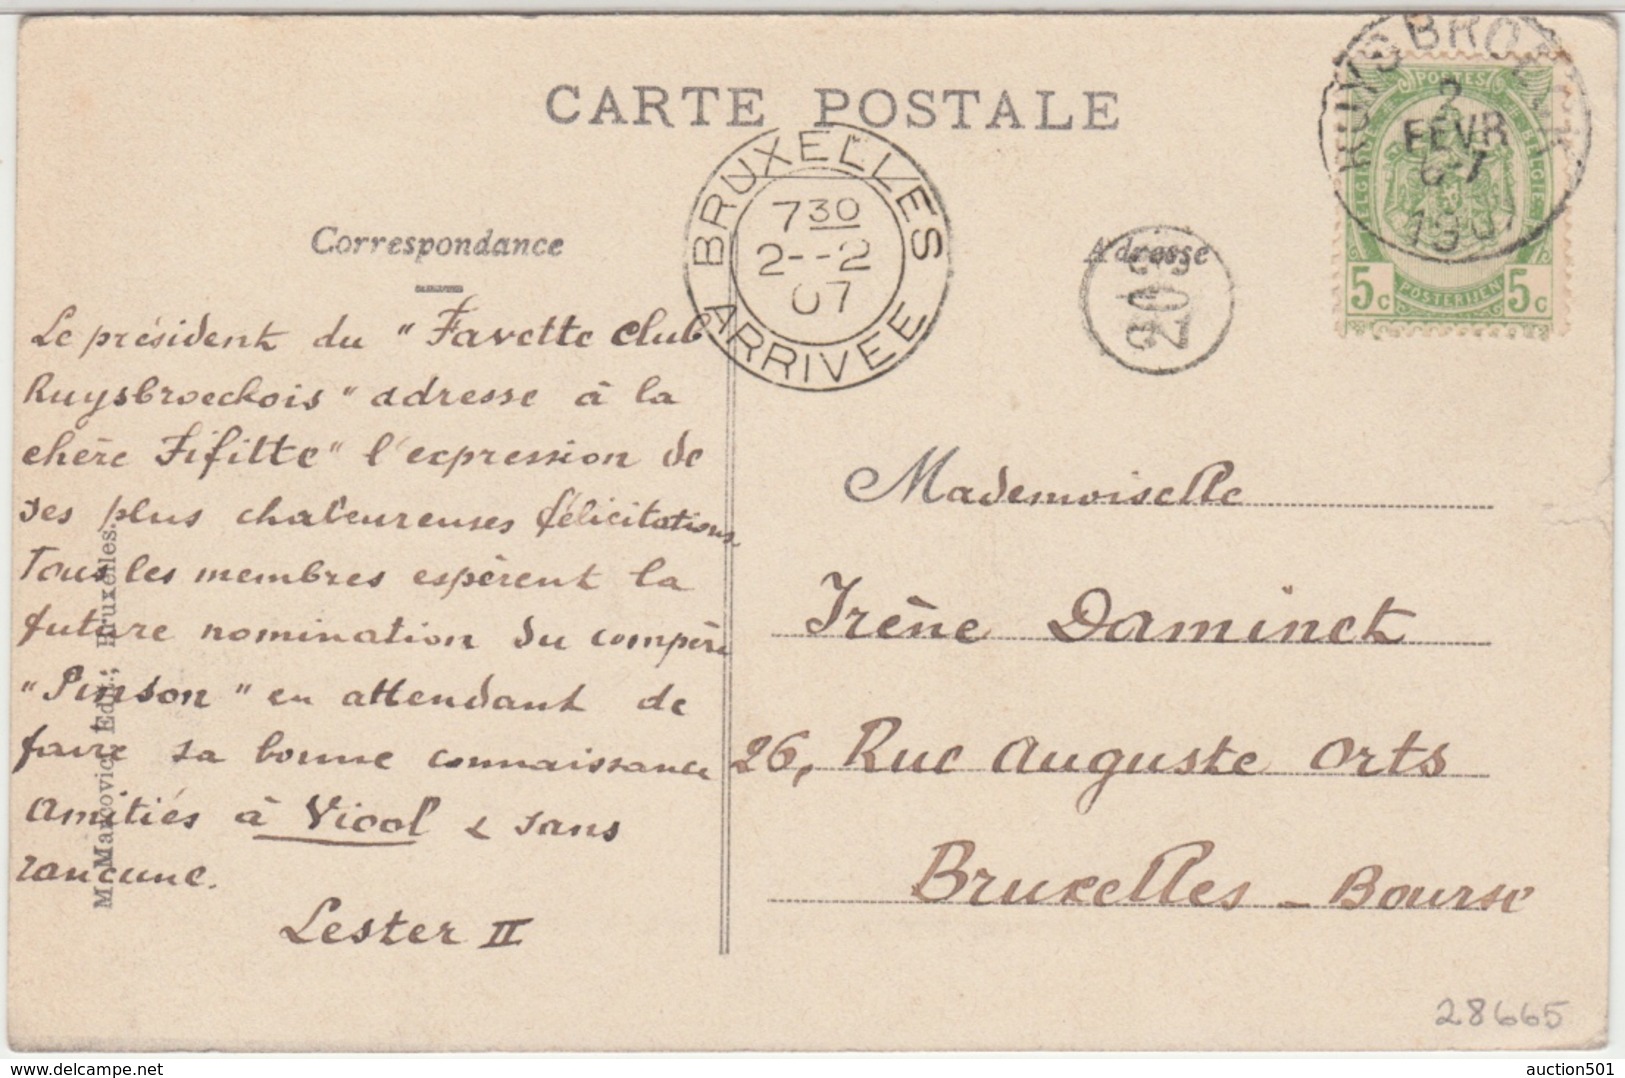 CARTE POSTALE
Correspondance
Adresse
Le président du "Favette Club
Ruysbroeckois" adresse à la
chère Fifitte" l'expression de
ses plus chaleureuses félicitations
Tous les membres espèrent la
future nomination du compère
"Pinson" en attendant de
faire sa bonne connaissance
Amitiés à Vicol & sans
rancune.
Lester II
M. Marcovici Edit., Bruxelles.
BRUXELLES
7 30
2--2
07
ARRIVEE
203
2
FEVR
6-7
1907
POSTES
BELGIQUE
BELGIE
5c
POSTERIJEN
5c
Mademoiselle
Irène Daminck
26, Rue Auguste Orts
Bruxelles - Bourse
28665
auction501